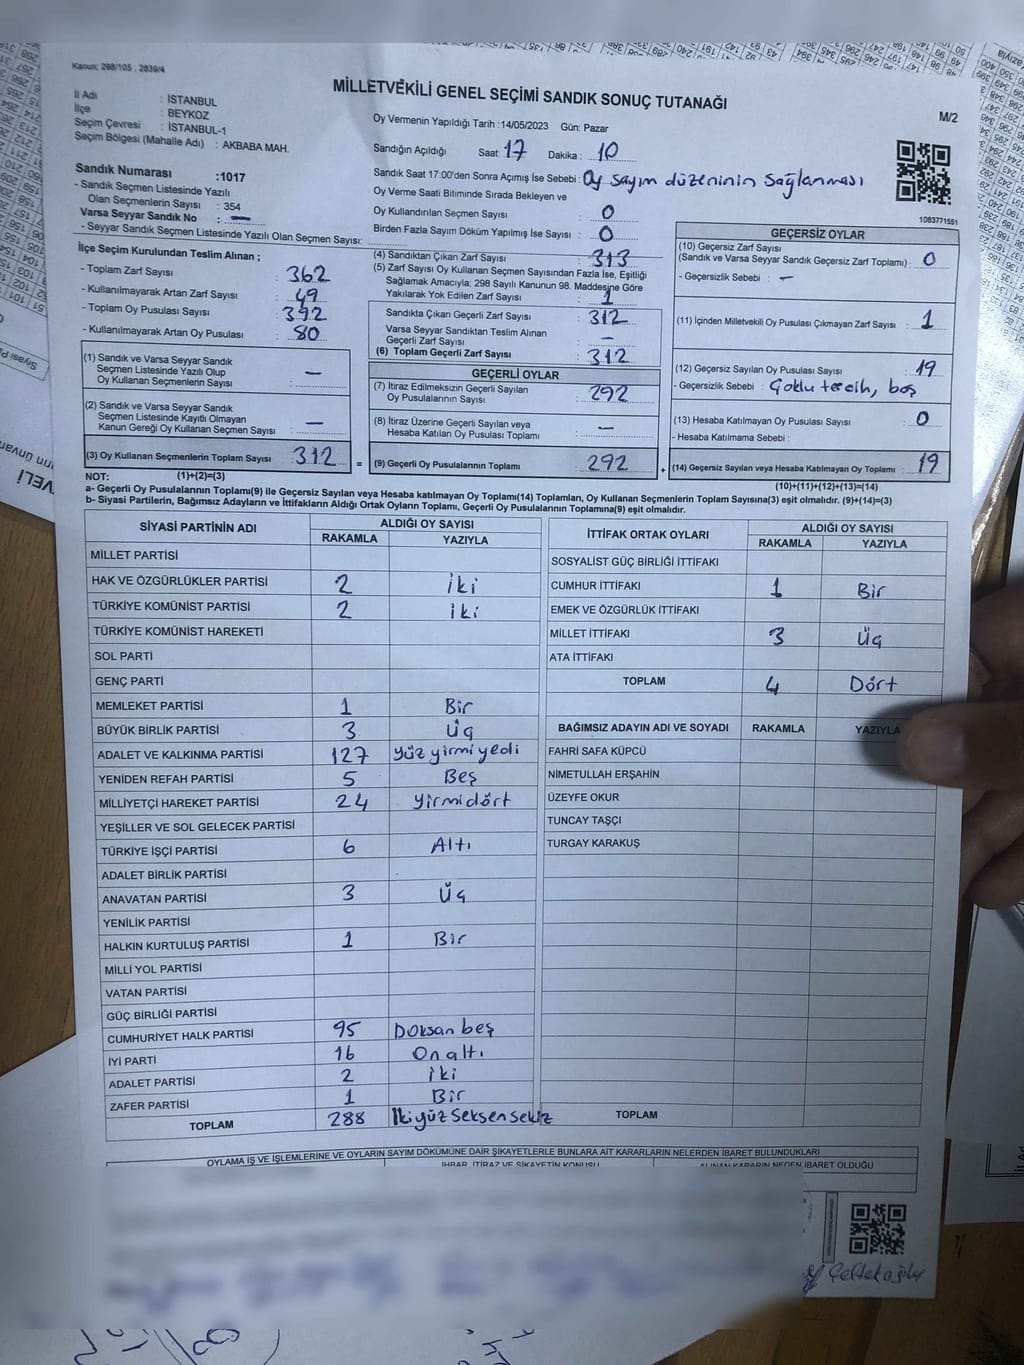 Kanun; 298/105 , 2839/4
MİLLETVEKİLİ GENEL SEÇİMİ SANDIK SONUÇ TUTANAĞI
M/2
İl Adı : İSTANBUL
İlçe : BEYKOZ
Seçim Çevresi : İSTANBUL-1
Seçim Bölgesi (Mahalle Adı) : AKBABA MAH.
Oy Vermenin Yapıldığı Tarih :14/05/2023 Gün: Pazar
Sandığın Açıldığı Saat: 17 Dakika : 10
Sandık Saat 17:00'den Sonra Açılmış İse Sebebi : Oy sayım düzeninin sağlanması
Oy Verme Saati Bitiminde Sırada Bekleyen ve
Oy Kullandırılan Seçmen Sayısı : 0
Birden Fazla Sayım Döküm Yapılmış İse Sayısı : 0
1083771551
Sandık Numarası :1017
- Sandık Seçmen Listesinde Yazılı
Olan Seçmenlerin Sayısı : 354
Varsa Seyyar Sandık No : —
- Seyyar Sandık Seçmen Listesinde Yazılı Olan Seçmen Sayısı:
İlçe Seçim Kurulundan Teslim Alınan ;
- Toplam Zarf Sayısı : 362
- Kullanılmayarak Artan Zarf Sayısı : 49
- Toplam Oy Pusulası Sayısı : 392
- Kullanılmayarak Artan Oy Pusulası : 80
(1) Sandık ve Varsa Seyyar Sandık
Seçmen Listesinde Yazılı Olup
Oy Kullanan Seçmenlerin Sayısı : —
(2) Sandık ve Varsa Seyyar Sandık
Seçmen Listesinde Kayıtlı Olmayan
Kanun Gereği Oy Kullanan Seçmen Sayısı : —
(3) Oy Kullanan Seçmenlerin Toplam Sayısı : 312
(4) Sandıktan Çıkan Zarf Sayısı : 313
(5) Zarf Sayısı Oy Kullanan Seçmen Sayısından Fazla İse, Eşitliği
Sağlamak Amacıyla; 298 Sayılı Kanunun 98. Maddesine Göre
Yakılarak Yok Edilen Zarf Sayısı : 1
Sandıkta Çıkan Geçerli Zarf Sayısı : 312
Varsa Seyyar Sandıktan Teslim Alınan
Geçerli Zarf Sayısı : —
(6) Toplam Geçerli Zarf Sayısı : 312
GEÇERLİ OYLAR
(7) İtiraz Edilmeksizin Geçerli Sayılan
Oy Pusulalarının Sayısı : 292
(8) İtiraz Üzerine Geçerli Sayılan veya
Hesaba Katılan Oy Pusulası Toplamı : —
= (9) Geçerli Oy Pusulalarının Toplamı : 292
GEÇERSİZ OYLAR
(10) Geçersiz Zarf Sayısı
(Sandık ve Varsa Seyyar Sandık Geçersiz Zarf Toplamı) : 0
- Geçersizlik Sebebi : —
(11) İçinden Milletvekili Oy Pusulası Çıkmayan Zarf Sayısı : 1
(12) Geçersiz Sayılan Oy Pusulası Sayısı : 19
- Geçersizlik Sebebi : Çoklu tercih, boş
(13) Hesaba Katılmayan Oy Pusulası Sayısı : 0
- Hesaba Katılmama Sebebi :
+ (14) Geçersiz Sayılan veya Hesaba Katılmayan Oy Toplamı : 19
NOT: (1)+(2)=(3)
(10)+(11)+(12)+(13)=(14)
a- Geçerli Oy Pusulalarının Toplamı(9) ile Geçersiz Sayılan veya Hesaba katılmayan Oy Toplamı(14) Toplamları, Oy Kullanan Seçmenlerin Toplam Sayısına(3) eşit olmalıdır. (9)+(14)=(3)
b- Siyasi Partilerin, Bağımsız Adayların ve İttifakların Aldığı Ortak Oyların Toplamı, Geçerli Oy Pusulalarının Toplamına(9) eşit olmalıdır.
SİYASİ PARTİNİN ADI ALDIĞI OY SAYISI
RAKAMLA YAZIYLA
MİLLET PARTİSİ
HAK VE ÖZGÜRLÜKLER PARTİSİ 2 iki
TÜRKİYE KOMÜNİST PARTİSİ 2 iki
TÜRKİYE KOMÜNİST HAREKETİ
SOL PARTİ
GENÇ PARTİ
MEMLEKET PARTİSİ 1 Bir
BÜYÜK BİRLİK PARTİSİ 3 Üç
ADALET VE KALKINMA PARTİSİ 127 Yüz yirmi yedi
YENİDEN REFAH PARTİSİ 5 Beş
MİLLİYETÇİ HAREKET PARTİSİ 24 Yirmidört
YEŞİLLER VE SOL GELECEK PARTİSİ
TÜRKİYE İŞÇİ PARTİSİ 6 Altı
ADALET BİRLİK PARTİSİ
ANAVATAN PARTİSİ 3 Üç
YENİLİK PARTİSİ
HALKIN KURTULUŞ PARTİSİ 1 Bir
MİLLİ YOL PARTİSİ
VATAN PARTİSİ
GÜÇ BİRLİĞİ PARTİSİ
CUMHURİYET HALK PARTİSİ 95 Doksan beş
İYİ PARTİ 16 On altı
ADALET PARTİSİ 2 iki
ZAFER PARTİSİ 1 Bir
TOPLAM 288 İkiyüz Seksen sekiz
İTTİFAK ORTAK OYLARI ALDIĞI OY SAYISI
RAKAMLA YAZIYLA
SOSYALİST GÜÇ BİRLİĞİ İTTİFAKI
CUMHUR İTTİFAKI 1 Bir
EMEK VE ÖZGÜRLÜK İTTİFAKI
MİLLET İTTİFAKI 3 Üç
ATA İTTİFAKI
TOPLAM 4 Dört
BAĞIMSIZ ADAYIN ADI VE SOYADI RAKAMLA YAZIYLA
FAHRİ SAFA KÜPCÜ
NİMETULLAH ERŞAHİN
ÜZEYFE OKUR
TUNCAY TAŞÇI
TURGAY KARAKUŞ
TOPLAM
OYLAMA İŞ VE İŞLEMLERİNE VE OYLARIN SAYIM DÖKÜMÜNE DAİR ŞİKAYETLERLE BUNLARA AİT KARARLARIN NELERDEN İBARET BULUNDUKLARI
İHBAR, İTİRAZ VE ŞİKAYETİN KONUSU ALINAN KARARIN NEDEN İBARET OLDUĞU